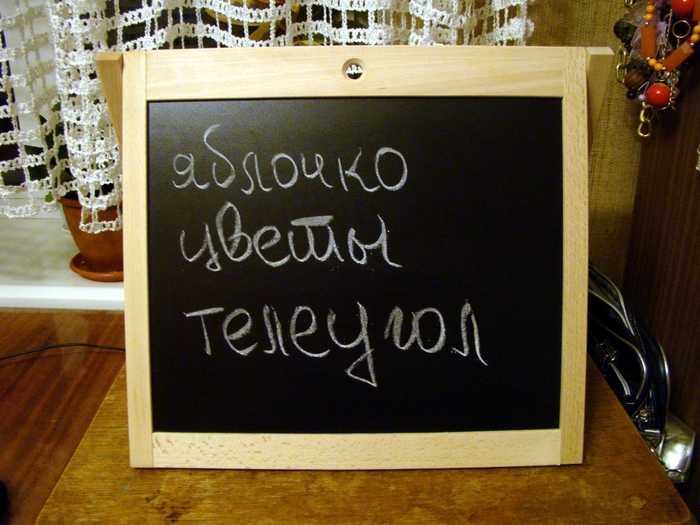 яблочко
цветы
телеугол